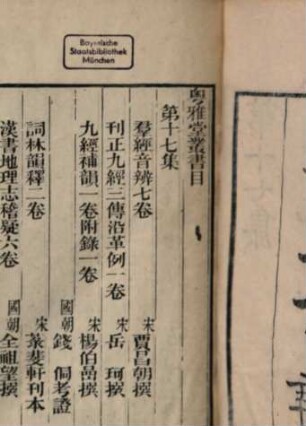 Bayerische
Staatsbibliothek
München
粵雅堂叢書目
第十七集
羣經音辨七卷 宋 賈昌朝撰
刊正九經三傳沿革例一卷 宋 岳珂撰
九經補韻一卷附錄一卷 宋 楊伯嵒撰
國朝 錢侗考證
詞林韻釋二卷 宋 菉斐軒刊本
漢書地理志稽疑六卷 國朝 全祖望撰